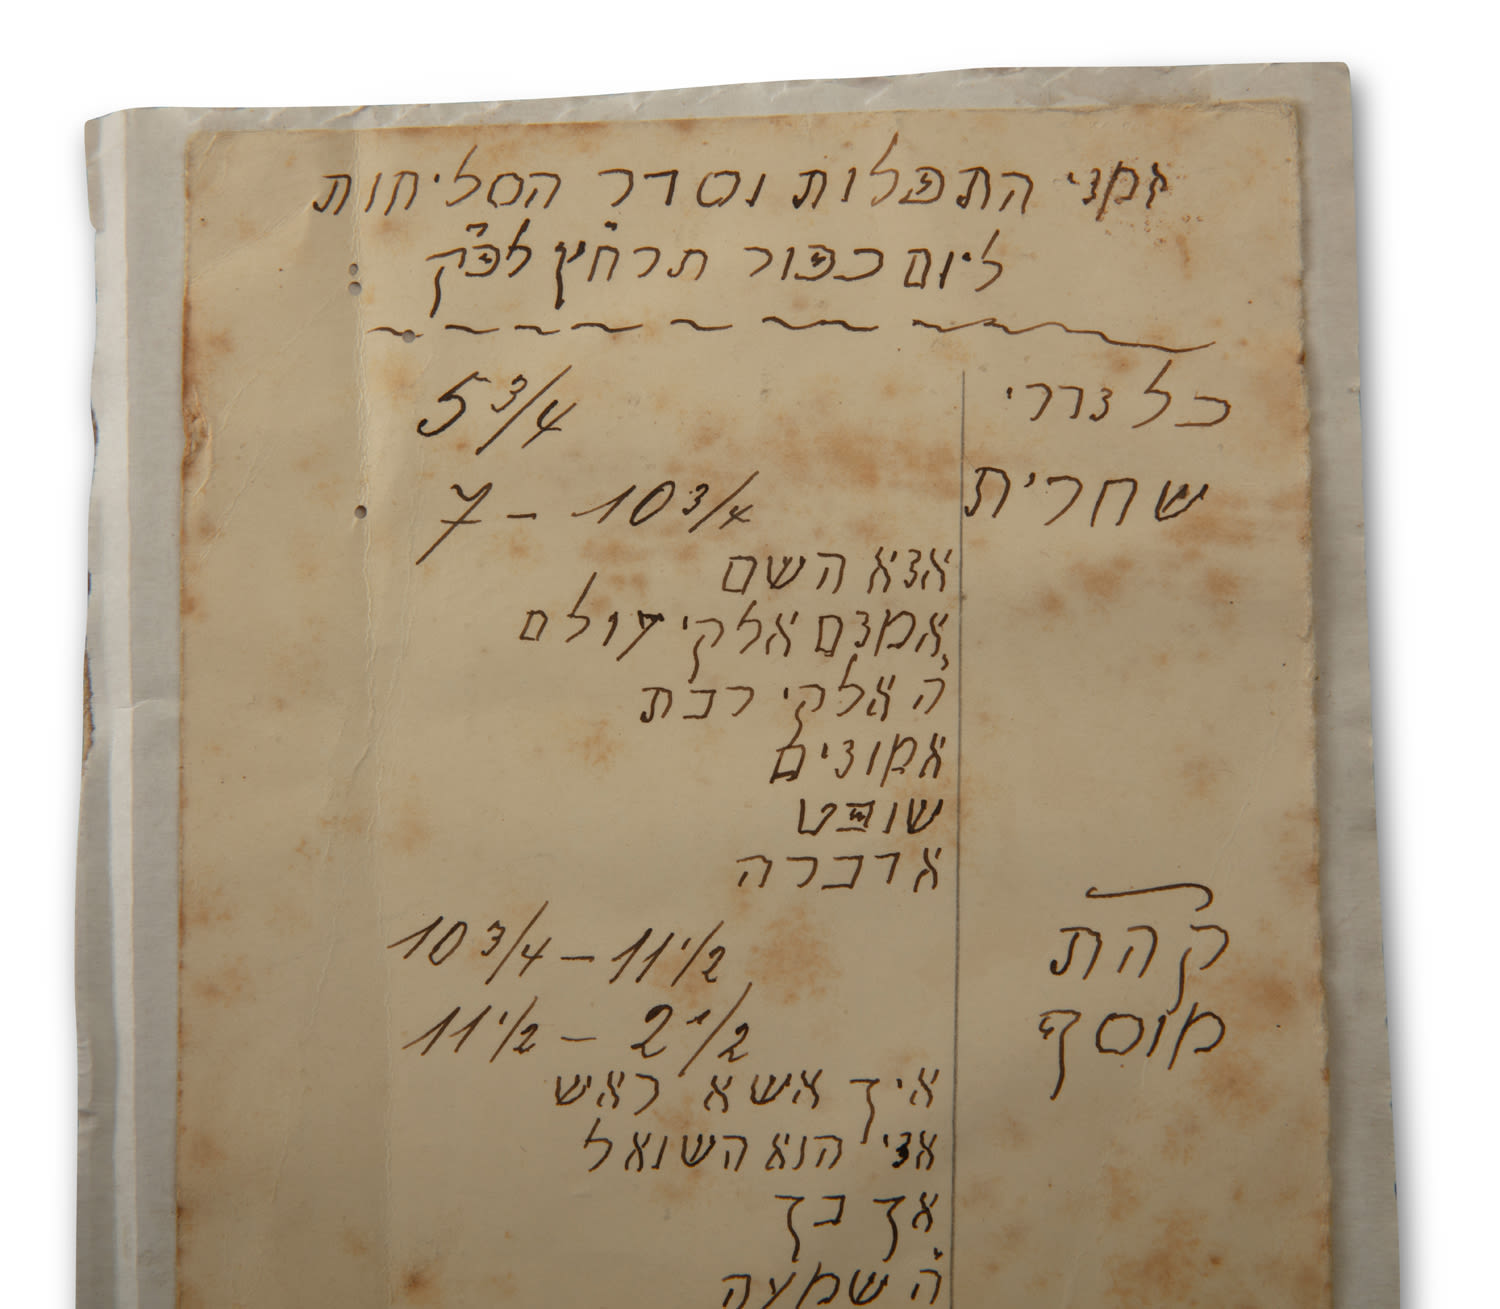 זמני התפלות וסדר הסליחות
ליום כפור תרח״ץ לפ״ק
כל נדרי 5 3/4
שחרית 7 – 10 3/4
אנא השם
אמנם אלקי עולם
ה' אלקי רבת
אמונים
שופט
אזכרה
קהת 10 3/4 – 11 1/2
מוסף 11 1/2 – 2 1/2
איך אשא ראש
אני הוא השואל
אך בך
ה' שמעה